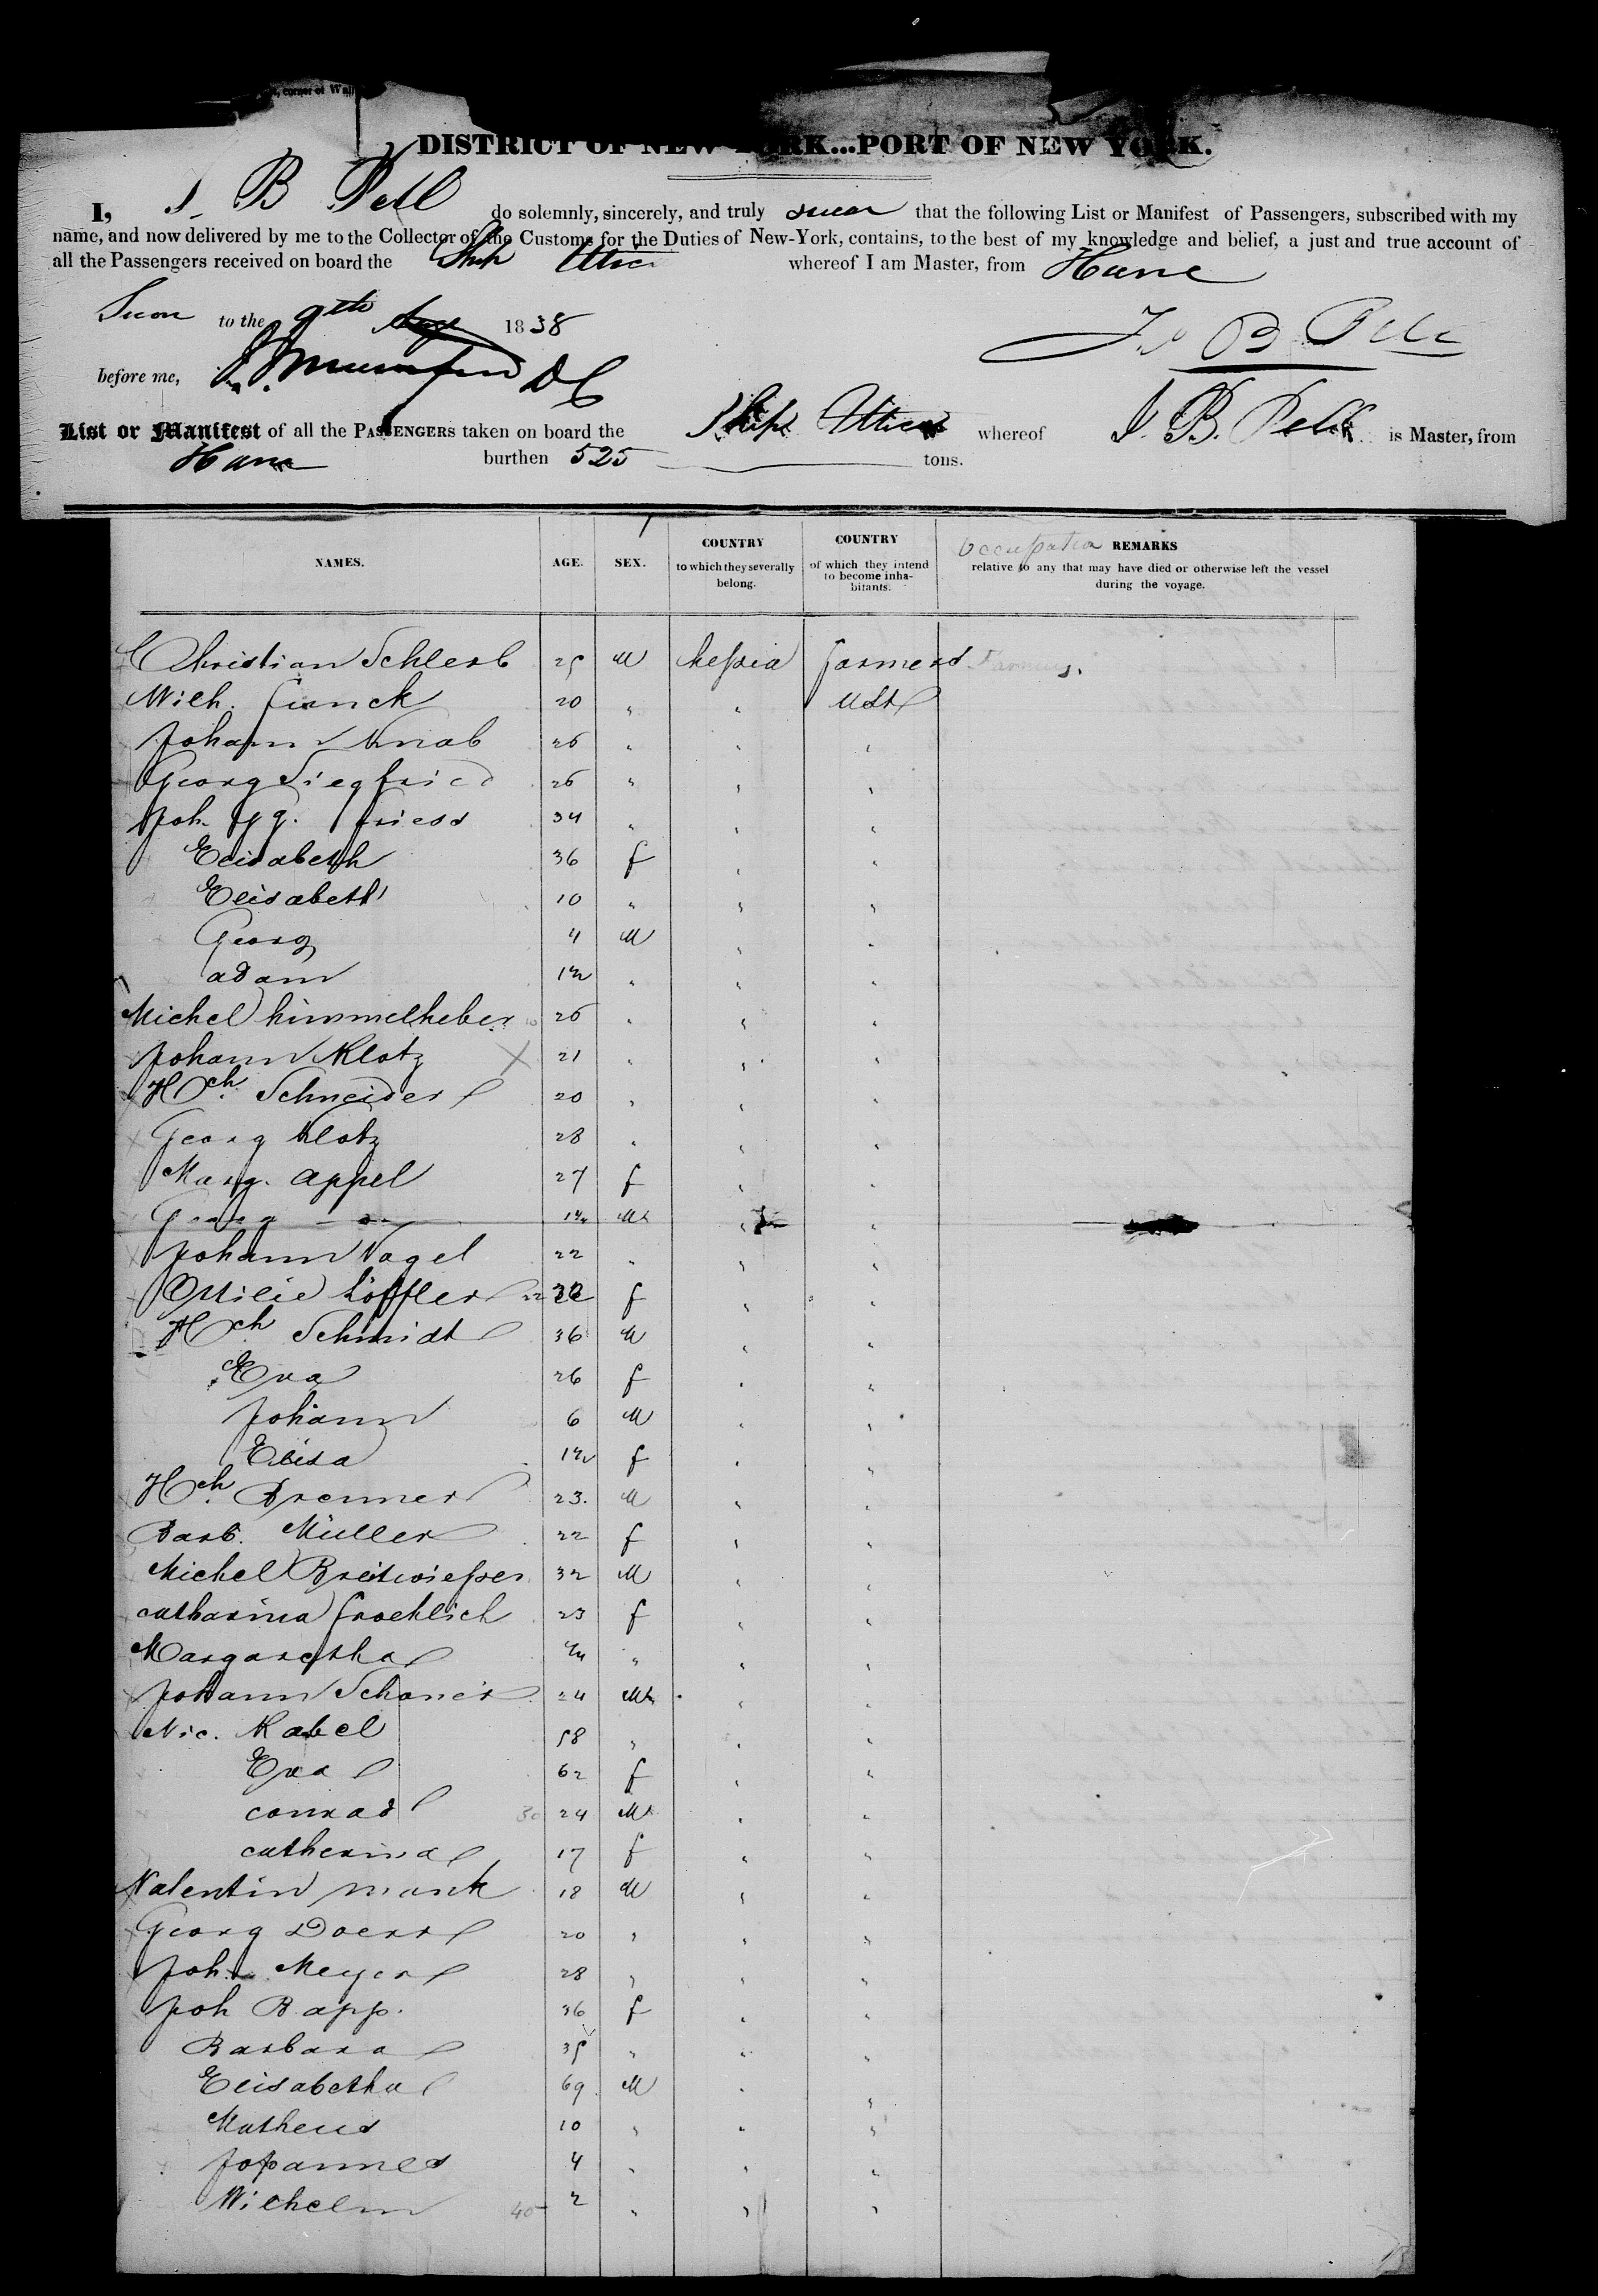 , corner of Wall
DISTRICT OF NEW YORK...PORT OF NEW YORK.
I, J. B Pell do solemnly, sincerely, and truly swear that the following List or Manifest of Passengers, subscribed with my
name, and now delivered by me to the Collector of the Customs for the Duties of New-York, contains, to the best of my knowledge and belief, a just and true account of
all the Passengers received on board the Ship Utica whereof I am Master, from Havre
Sworn to the 9th Aug 1838
J. B Pell
before me, DC
List or Manifest of all the PASSENGERS taken on board the Ship Utica whereof J. B. Pell is Master, from
Havre burthen 525 tons.
NAMES. AGE. SEX. COUNTRY to which they severally belong. COUNTRY of which they intend to become inhabitants. Occupation REMARKS relative to any that may have died or otherwise left the vessel during the voyage.
Christian Schlerb 25 M heſsia farmers Farmers.
Wilh. funck 20 " " USt
Johann Knab 26 " " "
Georg Siegfried 26 " " "
Joh. Gg. friess 34 " " "
Elisabeth 36 f " "
Elisabeth 10 " " "
Georg 4 M " "
adam " " "
Michel himmelheber 10 26 " " "
Johann Klotz X 21 " " "
Hch. Schneider 20 " " "
Georg Klotz 28 " " "
Marg. appel 27 f " "
Georg M " "
Johann Vogel 22 " " "
Ottilie Löffler 22 f " "
Hch Schmidt 36 M " "
Eva 26 f " "
Johann 6 M " "
Elisa f " "
Hch. Brenner 23. M " "
Barb. Müller 22 f " "
Michel Breitwieſser 32 M " "
catharina froehlich 23 f " "
Margaretha " " "
Johann Schoner 24 M " "
Nic. Kabel 58 " " "
Eva 62 f " "
conrad 30 24 M " "
catherina 17 f " "
Valentin mank 18 M " "
Georg Doerr 20 " " "
Joh. Meyer 28 " " "
Joh Rapp. 36 f " "
Barbara 35 " " "
Elisabetha 69 M " "
Matheus 10 " " "
Johannes 4 " " "
Wilhelm 40 2 " " "